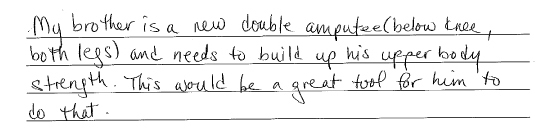 My brother is a new double amputee (below knee,
both legs) and needs to build up his upper body
strength. This would be a great tool for him to
do that.